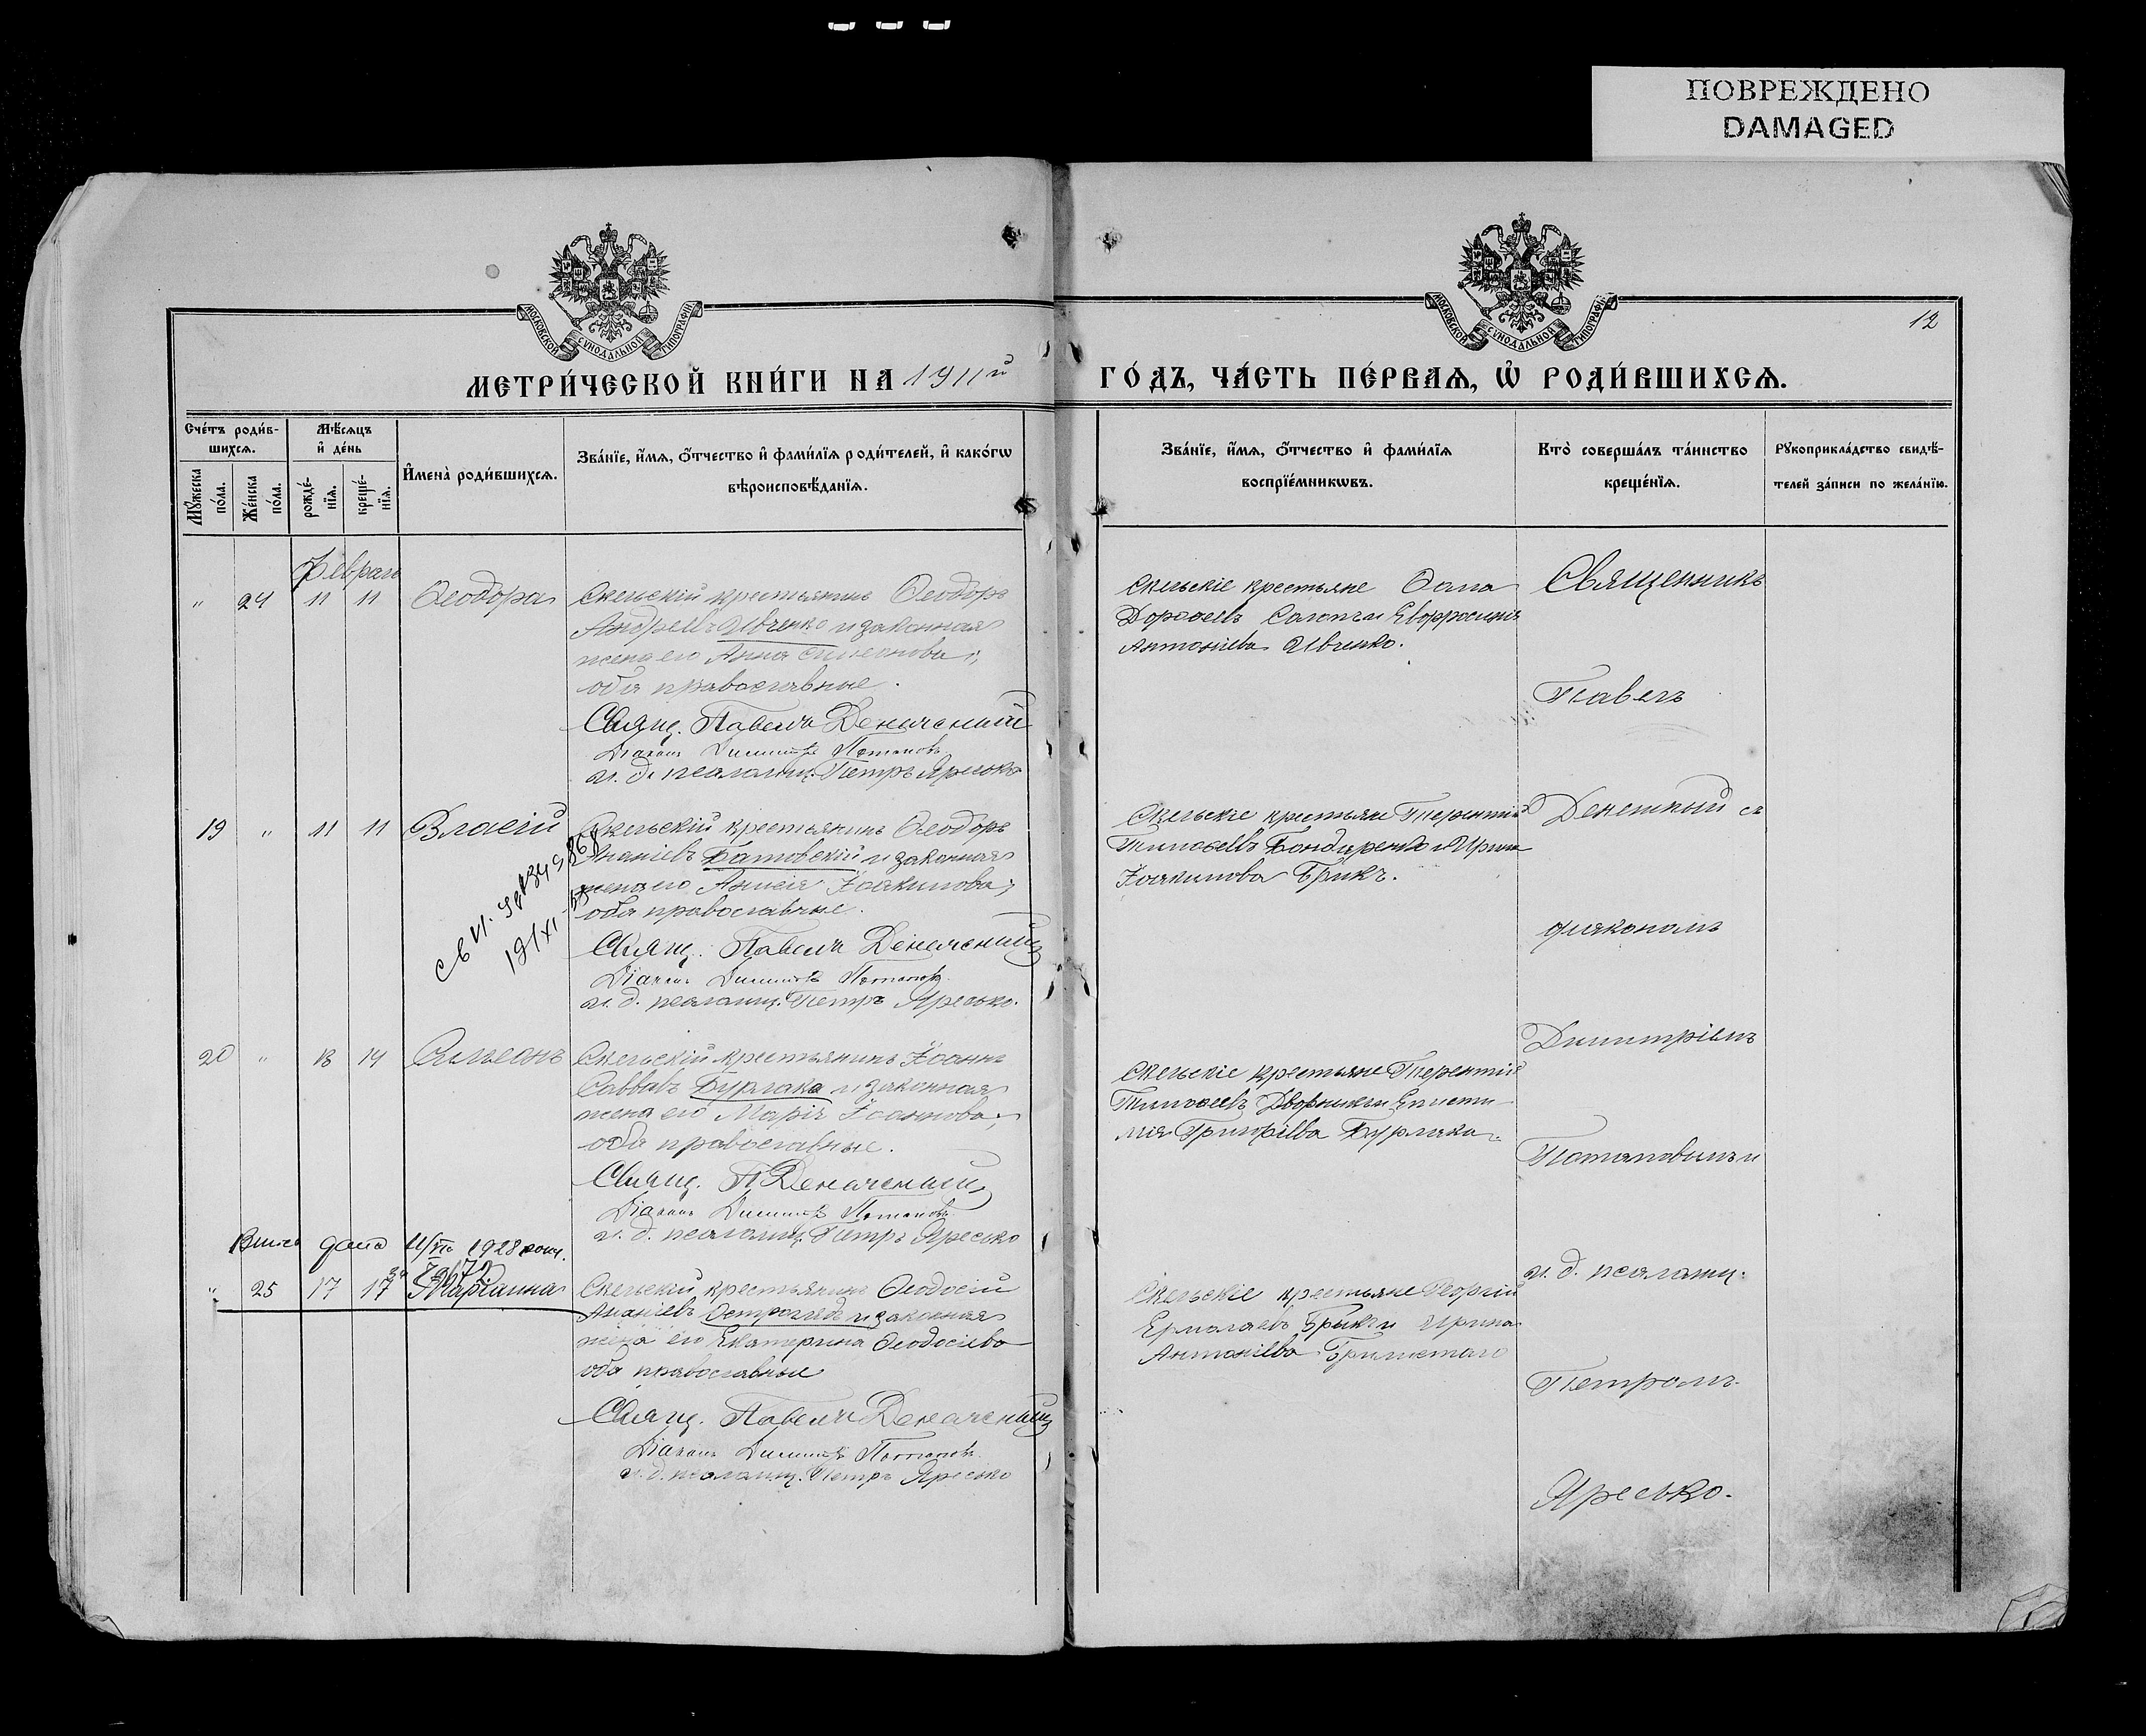 ПОВРЕЖДЕНО
DAMAGED
МОСКОВСКОЙ СѴНОДАЛЬНОЙ ТИПОГРАФІИ
МОСКОВСКОЙ СѴНОДАЛЬНОЙ ТИПОГРАФІИ
12
МЕТРИ́ЧЕСКОЙ КНИ́ГИ НА 1911й
ГО́ДЪ, ЧА́СТЬ ПЕ́РВАѦ, Ѡ РОДИ́ВШИХСѦ.
Сче́тъ роди́в-
шихсѧ.
Мꙋ́жеска по́ла.
Же́нска по́ла.
Мѣ́сѧцъ
и҆ де́нь
рожде́-
нїѧ.
креще́-
нїѧ.
И҆мена̀ роди́вшихсѧ.
Зва́нїе, и҆́мѧ, ѻ҆́тчество и҆ фами́лїѧ роди́телей, и҆ како́гѡ
вѣроисповѣ́данїѧ.
Зва́нїе, и҆́мѧ, ѻ҆́тчество и҆ фами́лїѧ
воспрїе́мникѡвъ.
Кто̀ соверша́лъ та́инство
креще́нїѧ.
Рꙋкоприкла́дство свидѣ́-
телей за́писи по жела́нїю.
Феврал
" 24 11 11 Ѳеодора
Скельскій крестьянинъ Ѳеодоръ
Андреевъ Явченко и законная
жена его Анна Симеонова;
оба православные.
Свящ. Павелъ
Діаконъ Димитрій Потаповъ
и. д. псаломщ. Петръ Яресько
Скельскіе крестьяне Ѳома
Дороѳеевъ и Евфросинія
Антоніева Явченко.
19 " 11 11 Власій
Скельскій крестьянинъ Ѳеодоръ
Ананіевъ Батовскій и законная
жена его Іоакимова;
оба православные.
Свящ. Павелъ
Діаконъ Димитрій Потаповъ
и. д. псаломщ. Петръ Яресько.
Скельскіе крестьяне Терентій
Тимоѳеевъ Бондаренко и Ирина
Іоакимова Брикъ.
20 " 13 14 Симеонъ
Скельскій крестьянинъ Іоаннъ
Саввинъ Бурлака и законная
жена его Марія Іоаннова;
оба православные.
Свящ. П
Діаконъ Димитрій Потаповъ
и. д. псаломщ. Петръ Яресько
Скельскіе крестьяне Терентій
Тимоѳеевъ Дворникъ и Еписти
мія Григоріева Бурлака.
дана 1928
" 25 17 17 Маріанна
Скельскій крестьянинъ Ѳеодосій
Ананіевъ Остроглядъ и законная
жена его Екатерина Ѳеодосіева
оба православные
Свящ. Павелъ
Діаконъ Димитрій Потаповъ
и. д. псаломщ. Петръ Яресько
Скельскіе крестьяне Георгій
Ермолаевъ Брикъ и Ирина
Антоніева
Священникъ
Павелъ
съ
діакономъ
Димитріемъ
Потаповымъ и
и. д. псаломщ.
Петромъ
Яресько.